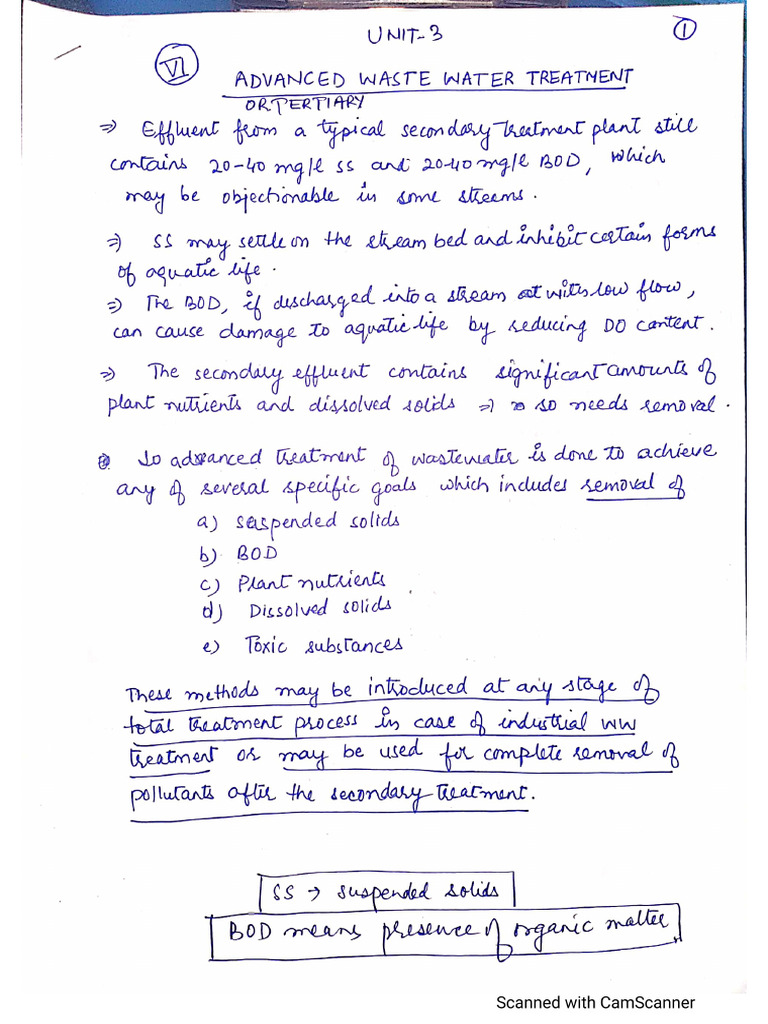 UNIT-3
①
VI
ADVANCED WASTE WATER TREATMENT
OR TERTIARY
⇒ Effluent from a typical secondary treatment plant still
contains 20-40 mg/l SS and 20-40 mg/l BOD, which
may be objectionable in some streams.
⇒ SS may settle on the stream bed and inhibit certain forms
of aquatic life.
⇒ The BOD, if discharged into a stream with low flow,
can cause damage to aquatic life by reducing DO content.
⇒ The secondary effluent contains significant amounts of
plant nutrients and dissolved solids ⇒ so needs removal.
So advanced treatment of wastewater is done to achieve
any of several specific goals which includes removal of
a) suspended solids
b) BOD
c) Plant nutrients
d) Dissolved solids
e) Toxic substances
These methods may be introduced at any stage of
total treatment process in case of industrial WW
treatment or may be used for complete removal of
pollutants after the secondary treatment.
SS → suspended solids
BOD means presence of organic matter
Scanned with CamScanner